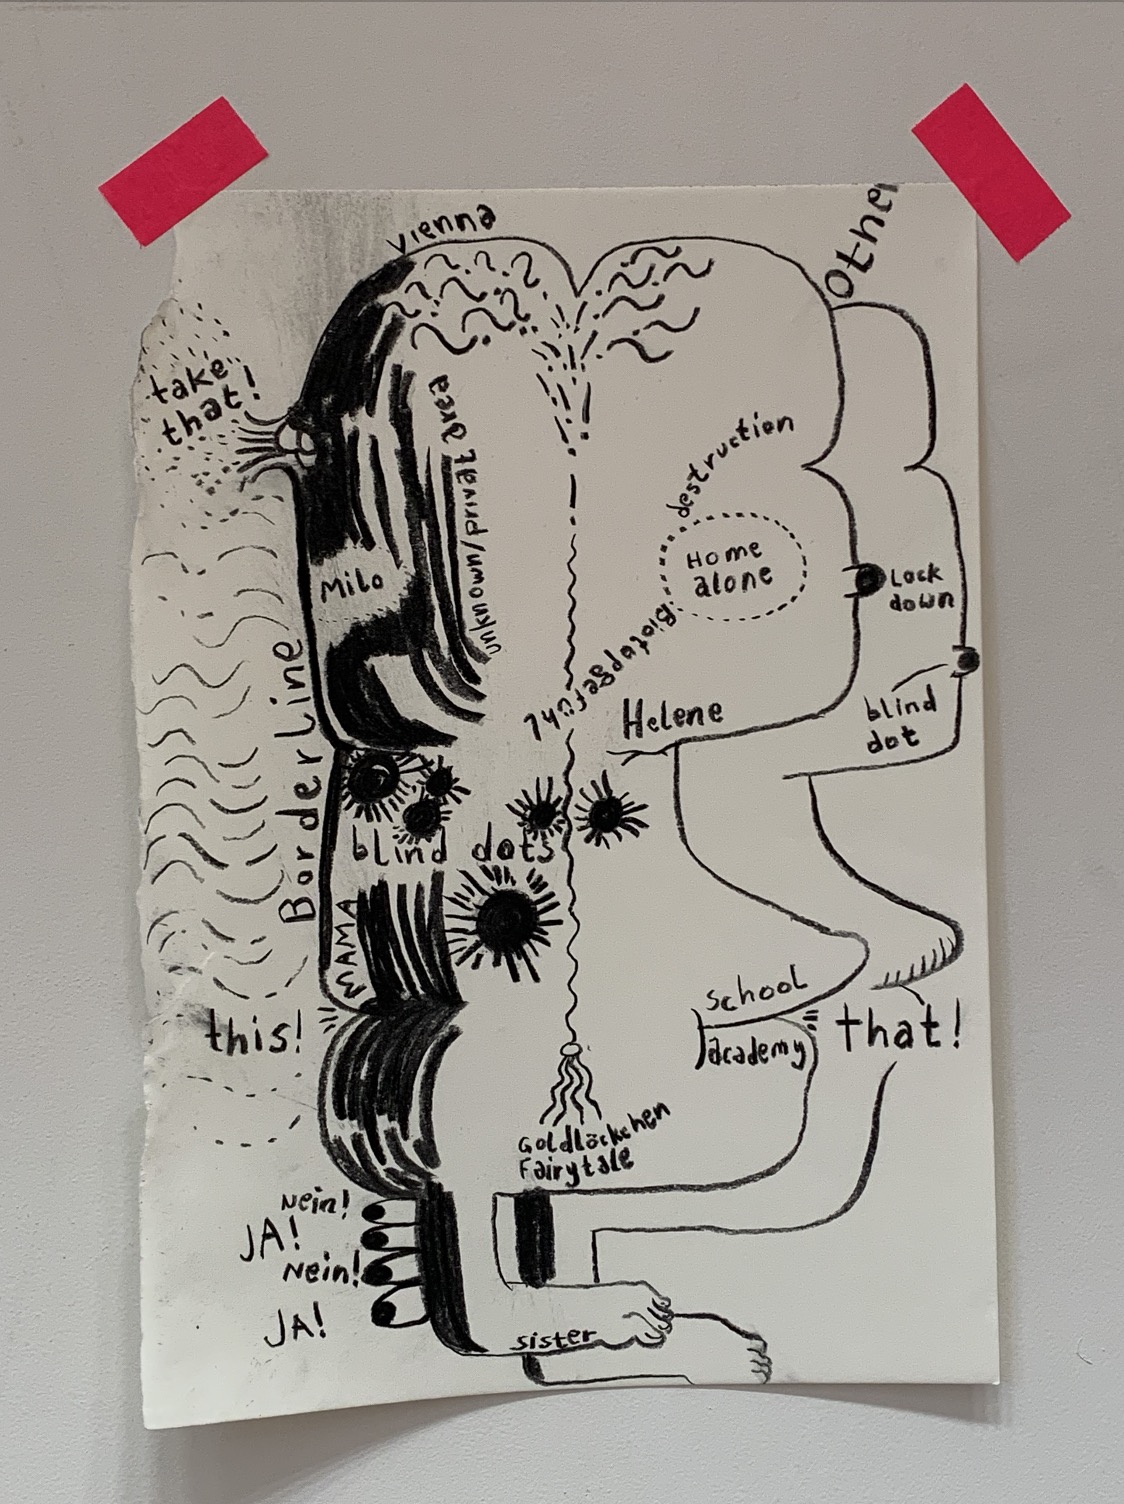 vienna
Other
take
that!
unknown/private area
destruction
Home
alone
Milo
Lock
down
Borderline
blind
dot
Helene
blind dots
MAMA
school
academy
this!
that!
Goldläckchen
Fairytale
Nein!
JA!
Nein!
JA!
sister